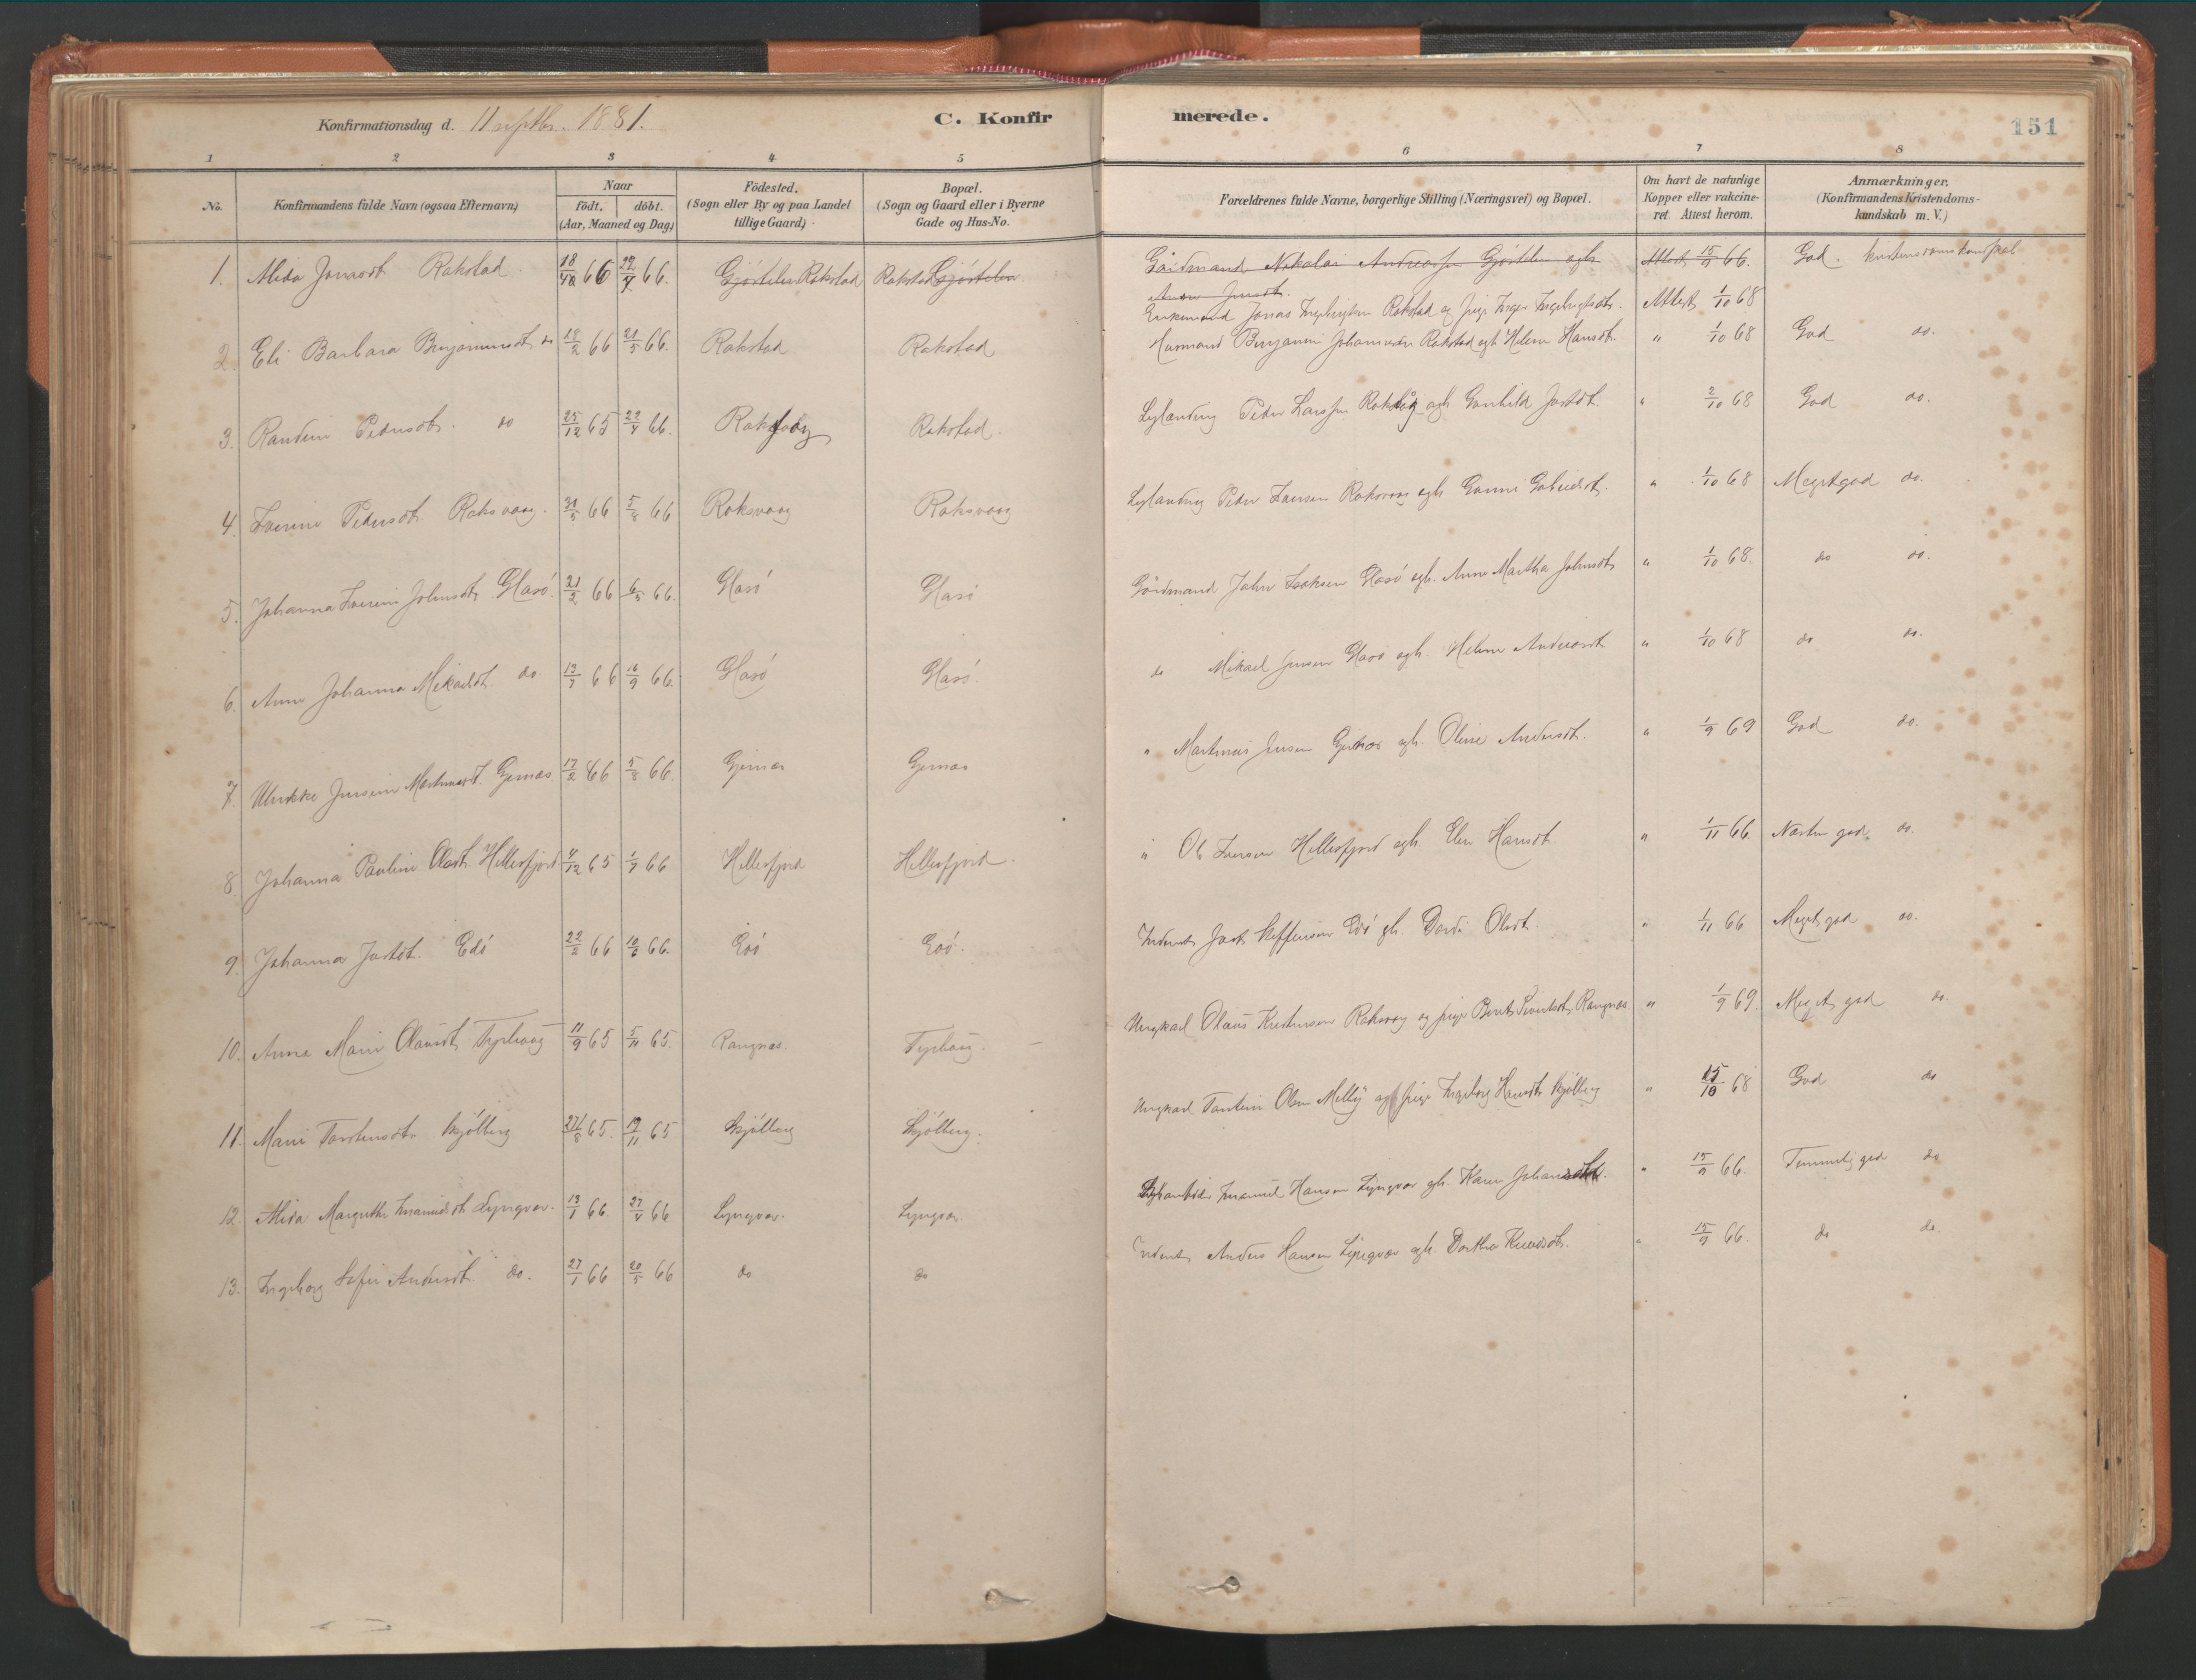 Konfirmationsdag d. 11 septbr. 1881. C. Konfirmerede. 151
1 2 3 4 5 6 7 8
No. Konfirmandens fulde Navn (ogsaa Efternavn) Naar födt. döbt. (Aar, Maaned og Dag) Födested. (Sogn eller By og paa Landet tillige Gaard) Bopæl. (Sogn og Gaard eller i Byerne Gade og Hus-No. Forældrenes fulde Navne, borgerlige Stilling (Næringsvei) og Bopæl. Om havt de naturlige Kopper eller vakcineret. Attest herom. Anmærkninger. (Konfirmandens Kristendomskundskab m. V.)
1. Alida Jonasdt. Rokstad. 18/10 66 22/7 66. Gjöstelen Rokstad Rokstad Gjöstelen Gårdmand Nikolai Andreassen Gjöstelen og h. Attest 15/9 66. God. kristendomskundskab
Enkemand Jonas Ingebrigtsen Rokstad og pige Inger Ingebrigtsdt. Attest 1/10 68
2. Eli Barbara Benjaminsdt do 18/2 66 21/5 66. Rokstad Rokstad Husmand Benjamin Johannesen Rokstad og h. Helene Hansdt. " 1/10 68 God do.
3. Randine Pedersdt. do 25/12 65 22/4 66. Roksvåg Rokstad. Peder Larssen Roksvåg og h. Gunhild Jostdt. " 2/10 68 God do.
4. Iverine Pedersdt. Roksvaag. 5/8 66 Roksvaag Roksvaag Peder Iversen Roksvaag og h. " 1/10 68 Meget god do.
5. Johanna Iverine Johnsdt. Glasö. 21/2 66 6/5 66. Glasö Glasö Gårdmand John Isaksen Glasö og h. Anne Martha Johnsdt. " 1/10 68. do do.
6. Anne Johanna Mikaelsdt. do. 13/7 66 16/9 66. Glasö Glasö. do Mikael Jensen Glasö og h. Helene Andreasdt " 1/10 68 do do.
7. Ulrikke Jensine Martinusdt. Gjernæs. 17/2 66 5/8 66. Gjernæs Gjernæs " Martinus Jensen Gjernæs og h. Oline Andersdt. " 1/9 69 God do.
8. Johanna Pauline Olsdt. Hellesfjord 4/12 65 1/4 66 Hellesfjord Hellesfjord. " Ole Iversen Hellesfjord og h. Elen Hansdt " 1/11 66. Næsten god. do.
9. Johanna Jostdt. Edö 22/2 66 10/6 66. Edö Edö. Inderst Jost Steffensen Edö gh. Dordi Olsdt. " 1/11 66 Meget god do.
10. Anna Marie Olausdt. Typhaug 11/9 65 5/11 65. Rangnæs. Typhaug. Ungkarl Olaus Kristensen Roksvåg og pige Berit Sivertsdt. Rangnæs. " 1/9 69. Meget god do.
11. Marie Torstensdt. Skjölberg 27/8 65. 19/11 65 Skjölberg Skjölberg. Ungkarl Torstein Olsen Melby og pige Ingeborg Hansdt. Skjölberg " 15/10 68 God do
12. Alida Margrethe Emanuelsdt. Lyngvær. 13/1 66. 27/4 66 Lyngvær. Lyngvær. Emanuel Hansen Lyngvær gh. Karen Johansdt. " 15/9 66. Temmelig god do
13. Ingeborg Sofie Andersdt. do. 27/1 66 20/5 66 do do Inderst Anders Hansen Lyngvær og h. Dorthea Knudsdt. " 15/9 66. do do